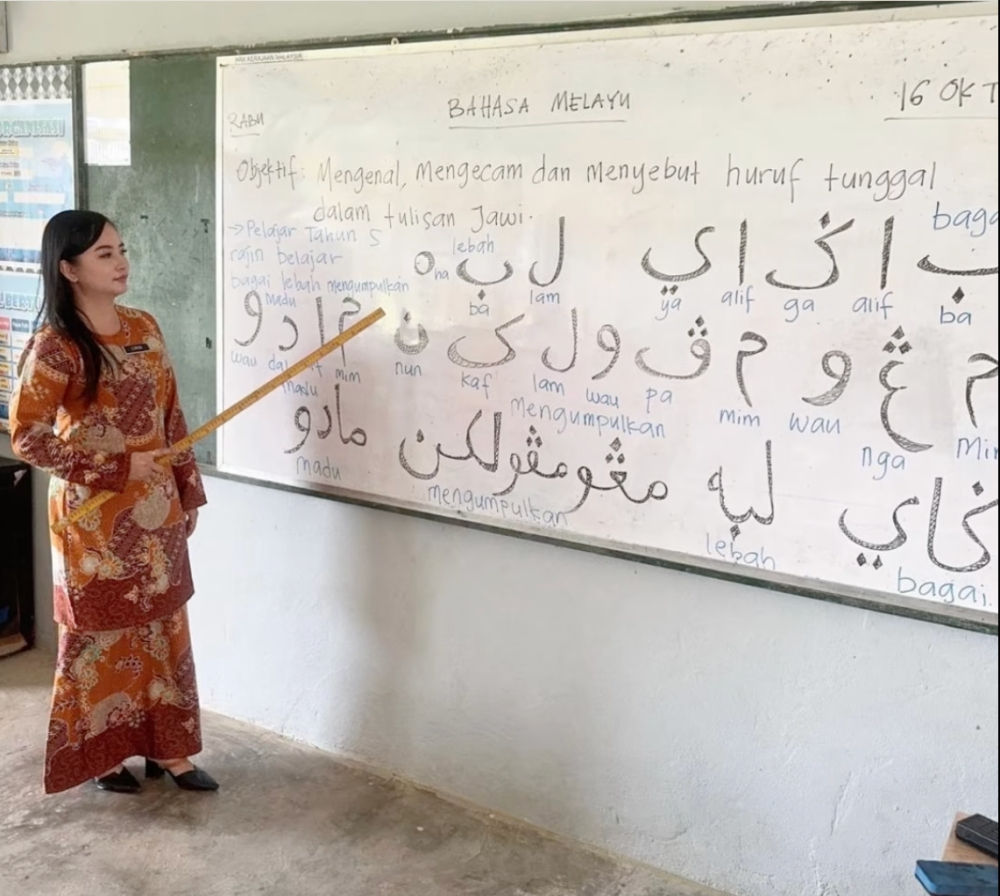 HAK KERAJAAN MALAYSIA
RABU
BAHASA MELAYU
16 OKT
Objektif: Mengenal, Mengecam dan menyebut huruf tunggal
dalam tulisan Jawi.
→Pelajar Tahun 5
rajin belajar
bagai lebah mengumpulkan
madu
lebah
baga
ب ا ݢ ا ي ل ب ه
ba alif ga alif ya lam ba ha
م ڠ و م ڤ و ل ک ن م ا د و
Mim nga wau mim pa wau lam kaf nun mim wau
mengumpulkan
madu
ݢاي لبه مڠومڤولکن مادو
bagai lebah mengumpulkan madu